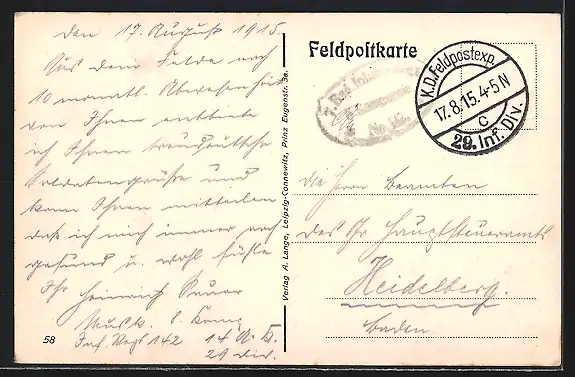 den 17. August 1915.
Aus dem Felde nach
10 monatl. Abwesenheit
von Ihnen entbiete
ich Ihnen treudeutsche
Soldatengrüße und
kann Ihnen mitteilen
daß ich mich immer noch
gesund u. wohl fühle
Ihr Heinrich Sauer
Musk. Komp.
Inf Regt 142 14 A. K.
29 Div.
58
Verlag A. Lange, Leipzig-Connewitz, Prinz Eugenstr. 3a.
Feldpostkarte
K.D.Feldpostexp.
17.8.15.4-5N
c
29.Inf.Div.
die Herrn Beamten
des Gr Hauptsteueramts
Heidelberg.
Baden.